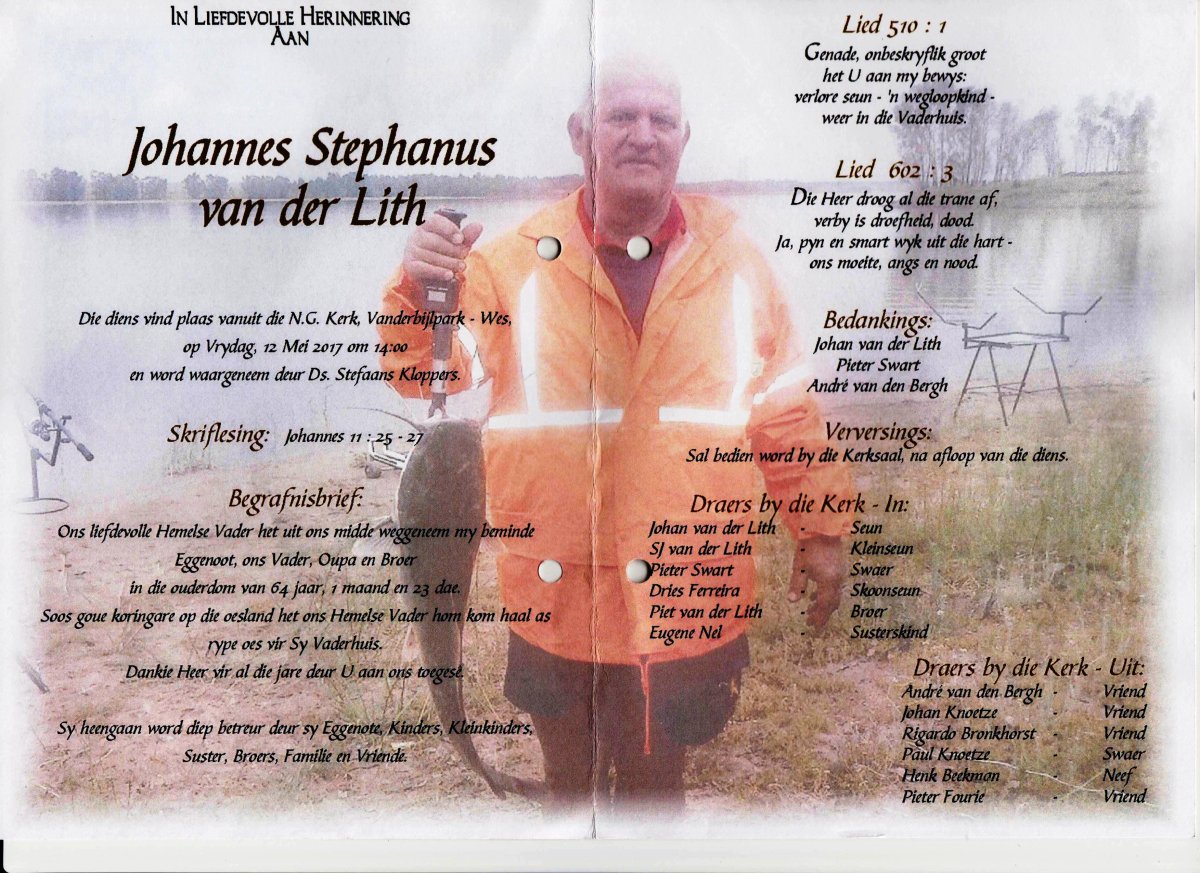 In Liefdevolle Herinnering
Aan
Johannes Stephanus
van der Lith
Die diens vind plaas vanuit die N.G. Kerk, Vanderbijlpark - Wes,
op Vrydag, 12 Mei 2017 om 14:00
en word waargeneem deur Ds. Stefaans Kloppers.
Skriflesing: Johannes 11 : 25 - 27
Begrafnisbrief:
Ons liefdevolle Hemelse Vader het uit ons midde weggeneem my beminde
Eggenoot, ons Vader, Oupa en Broer
in die ouderdom van 64 jaar, 1 maand en 23 dae.
Soos goue koringare op die oesland het ons Hemelse Vader hom kom haal as
rype oes vir Sy Vaderhuis.
Dankie Heer vir al die jare deur U aan ons toegesê.
Sy heengaan word diep betreur deur sy Eggenote, Kinders, Kleinkinders,
Suster, Broers, Familie en Vriende.
Lied 510 : 1
Genade, onbeskryflik groot
het U aan my bewys:
verlore seun - 'n wegloopkind -
weer in die Vaderhuis.
Lied 602 : 3
Die Heer droog al die trane af,
verby is droefheid, dood.
Ja, pyn en smart wyk uit die hart -
ons moeite, angs en nood.
Bedankings:
Johan van der Lith
Pieter Swart
André van den Bergh
Verversings:
Sal bedien word by die Kerksaal, na afloop van die diens.
Draers by die Kerk - In:
Johan van der Lith - Seun
SJ van der Lith - Kleinseun
Pieter Swart - Swaer
Dries Ferreira - Skoonseun
Piet van der Lith - Broer
Eugene Nel - Susterskind
Draers by die Kerk - Uit:
André van den Bergh - Vriend
Johan Knoetze - Vriend
Rigardo Bronkhorst - Vriend
Paul Knoetze - Swaer
Henk Beekman - Neef
Pieter Fourie - Vriend